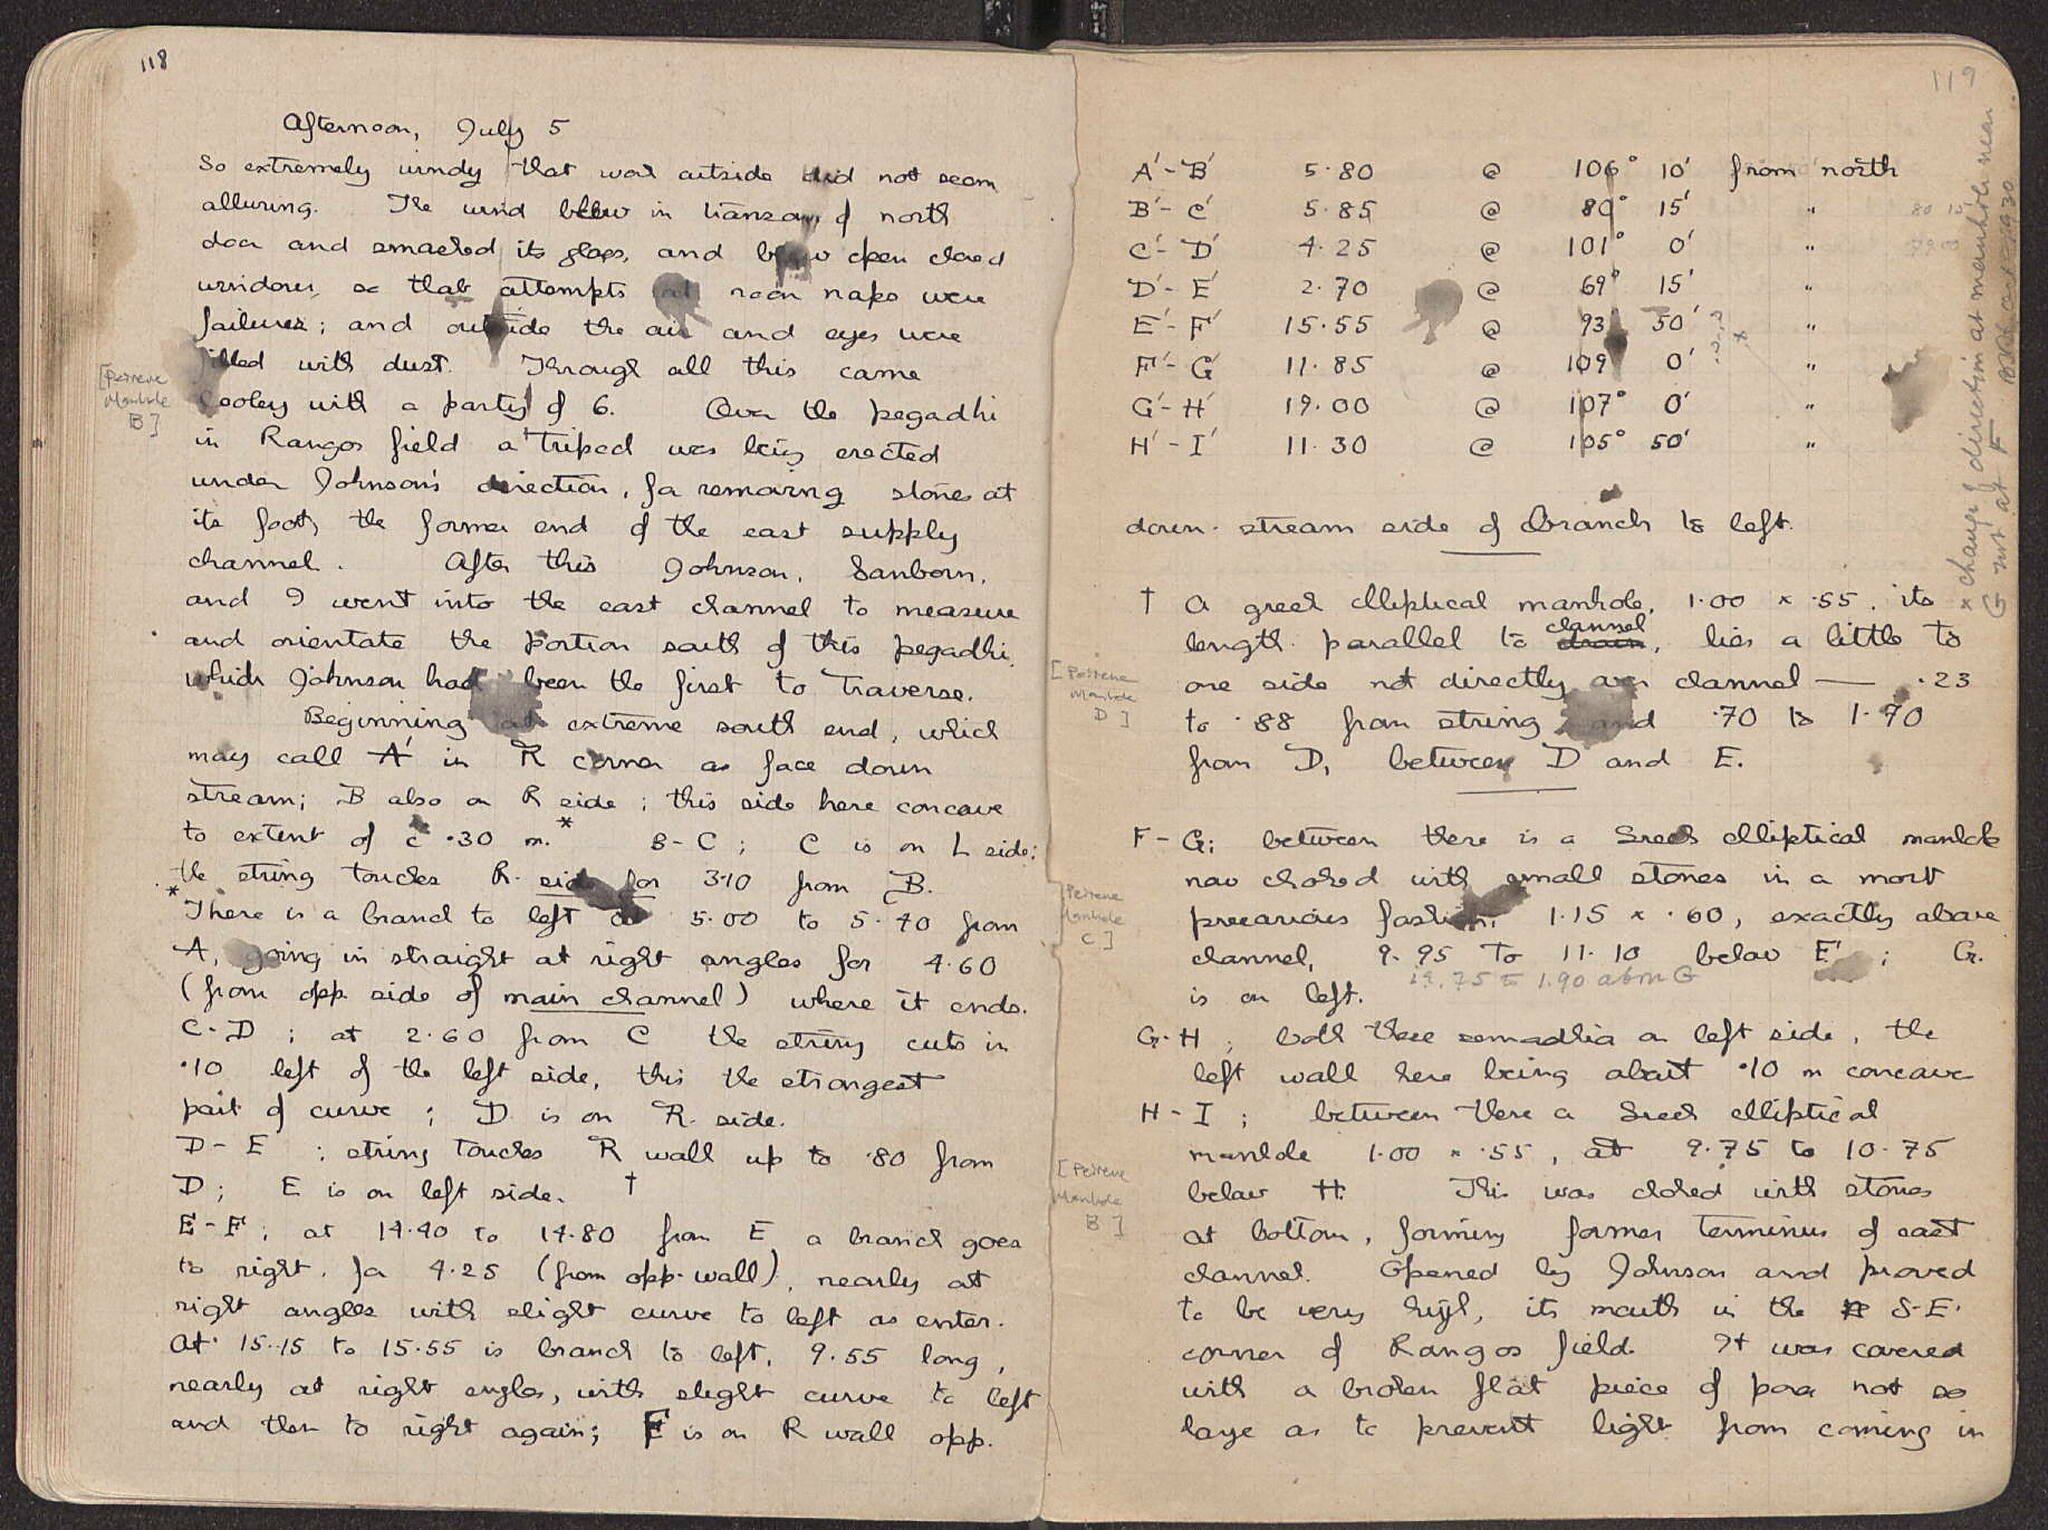 118
Afternoon, July 5
So extremely windy that work outside did not seem
alluring. The wind blew in transom of north
door and smashed its glass, and blew open closed
windows, so that attempts at noon naps were
failures; and outside the air and eyes were
filled with dust. Through all this came
Cooley with a party of 6. Over the pegadhi
in Rangos field a tripod was being erected
under Johnson's direction, for removing stones at
its foot, the former end of the east supply
channel. After this Johnson, Sanborn,
and I went into the east channel to measure
and orientate the portion south of this pegadhi,
which Johnson had been the first to traverse.
Beginning at extreme south end, which
may call A' in R corner as face down
stream; B also on R side; this side here concave
to extent of c .30 m.* B-C; C is on L side;
the string touches R. side for 3.10 from B.
* There is a branch to left at 5.00 to 5.70 from
A, going in straight at right angles for 4.60
(from opp. side of main channel) where it ends.
C-D; at 2.60 from C the string cuts in
.10 left of the left side, this the strongest
part of curve; D is on R. side.
D-E; string touches R wall up to .80 from
D; E is on left side. †
E-F; at 14.40 to 14.80 from E a branch goes
to right, for 4.25 (from opp. wall), nearly at
right angles with slight curve to left as enter.
At 15.15 to 15.55 is branch to left, 9.55 long,
nearly at right angles, with slight curve to left
and then to right again; F is on R wall opp.
[Peirene
Manhole
B]
119
A'-B' 5.80 @ 106° 10' from north
B'-C' 5.85 @ 80° 15' "
C'-D' 4.25 @ 101° 0' "
D'-E' 2.70 @ 69° 15' "
E'-F' 15.55 @ 93° 50' "
F'-G' 11.85 @ 109 0' "
G'-H' 19.00 @ 107° 0' "
H'-I' 11.30 @ 105° 50' "
down-stream side of branch to left.
† A Greek elliptical manhole, 1.00 x .55, its
length parallel to drain channel, lies a little to
one side not directly over channel — .23
to .88 from string and .70 to 1.70
from D, between D and E.
F-G; between there is a Greek elliptical manhole
now choked with small stones in a most
precarious fashion, 1.15 x .60, exactly above
channel, 9.95 to 11.10 below E'; G.
is on left.
= 1.90 above G
G-H; both these semadhia on left side, the
left wall here being about .10 m concave
H-I; between there a Greek elliptical
manhole 1.00 x .55, at 9.75 to 10.75
below H. This was choked with stones
at bottom, forming former terminus of east
channel. Opened by Johnson and proved
to be very high, its mouth in the S-E.
corner of Rangos field. It was covered
with a broken flat piece of poros not so
large as to prevent light from coming in
[Peirene
Manhole
D]
[Peirene
Manhole
C]
[Peirene
Manhole
B]
* change of direction at manhole near
G not at F